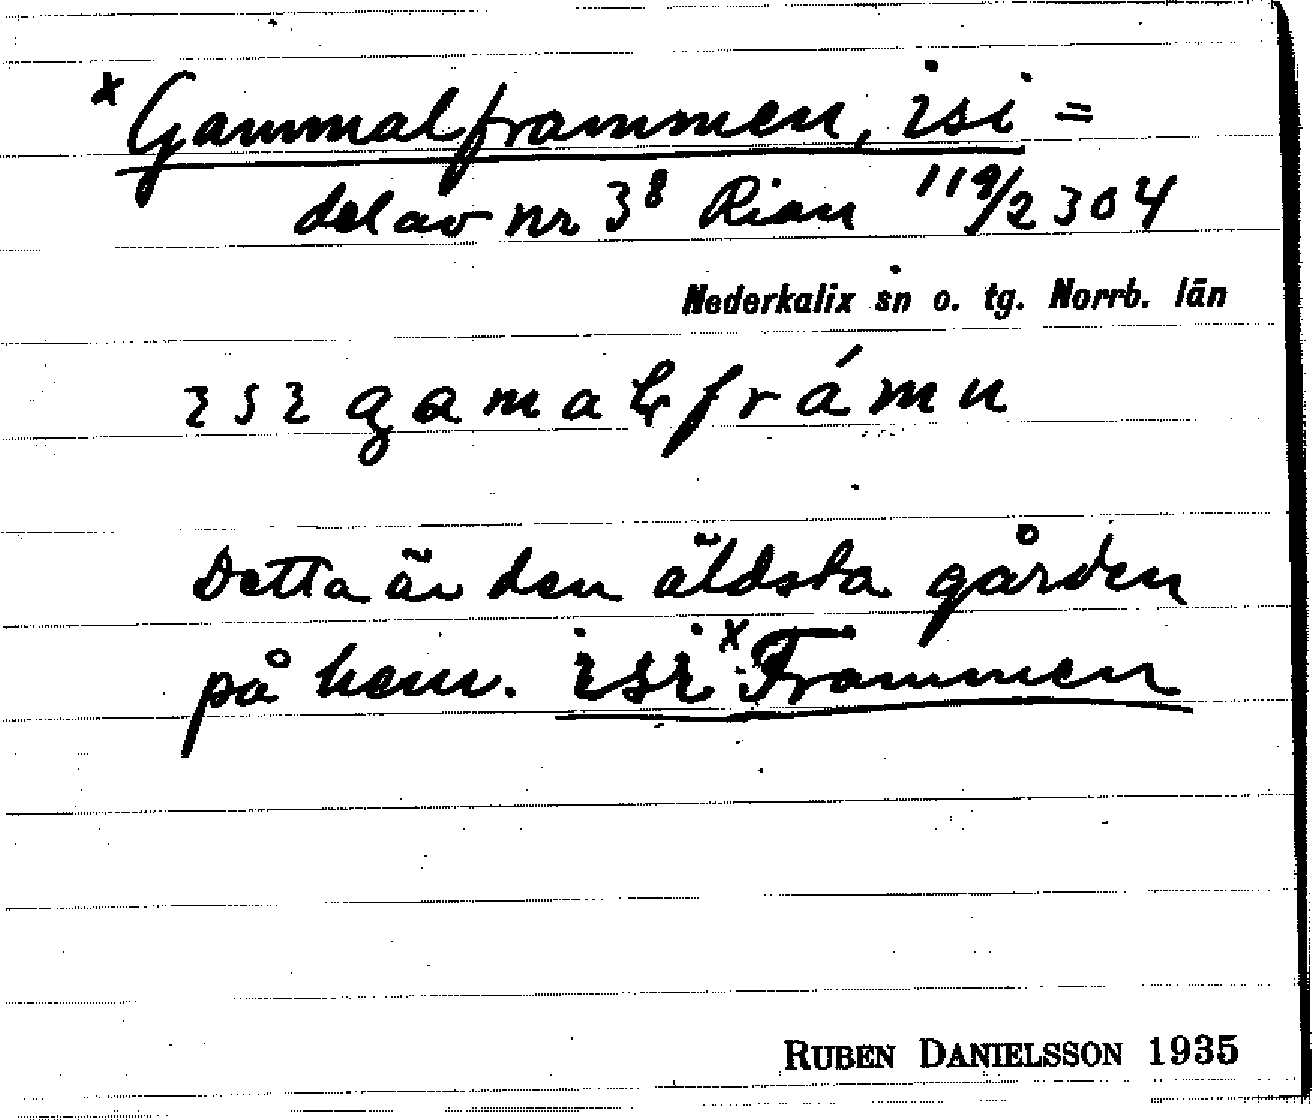 x Gammalframmen, isi =
del av nr 3⁸ Rian 119/2304
Nederkalix sn o. tg. Norrb. län
ısı gamalframn
Detta är den äldsta gården
på hem. isi x Frammen
RUBEN DANIELSSON 1935